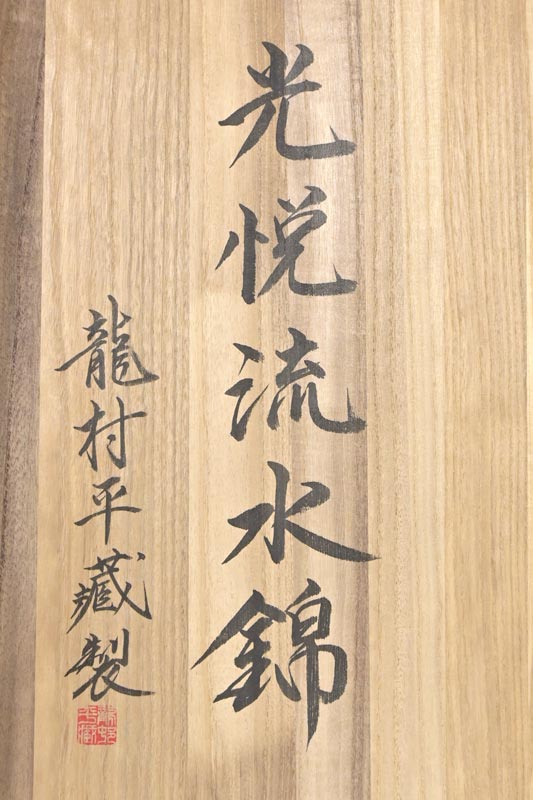 光悦流水錦
龍村平藏製